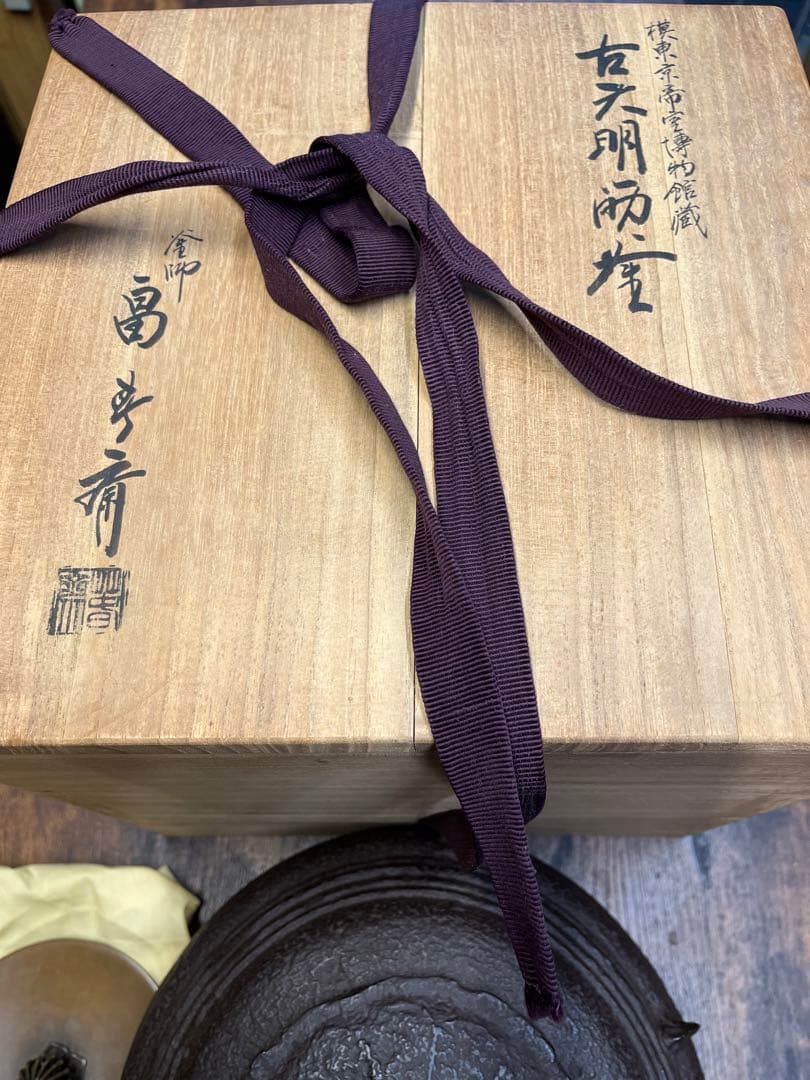 模東京帝室博物館藏
古天明筋釜
釜師
畠春斎